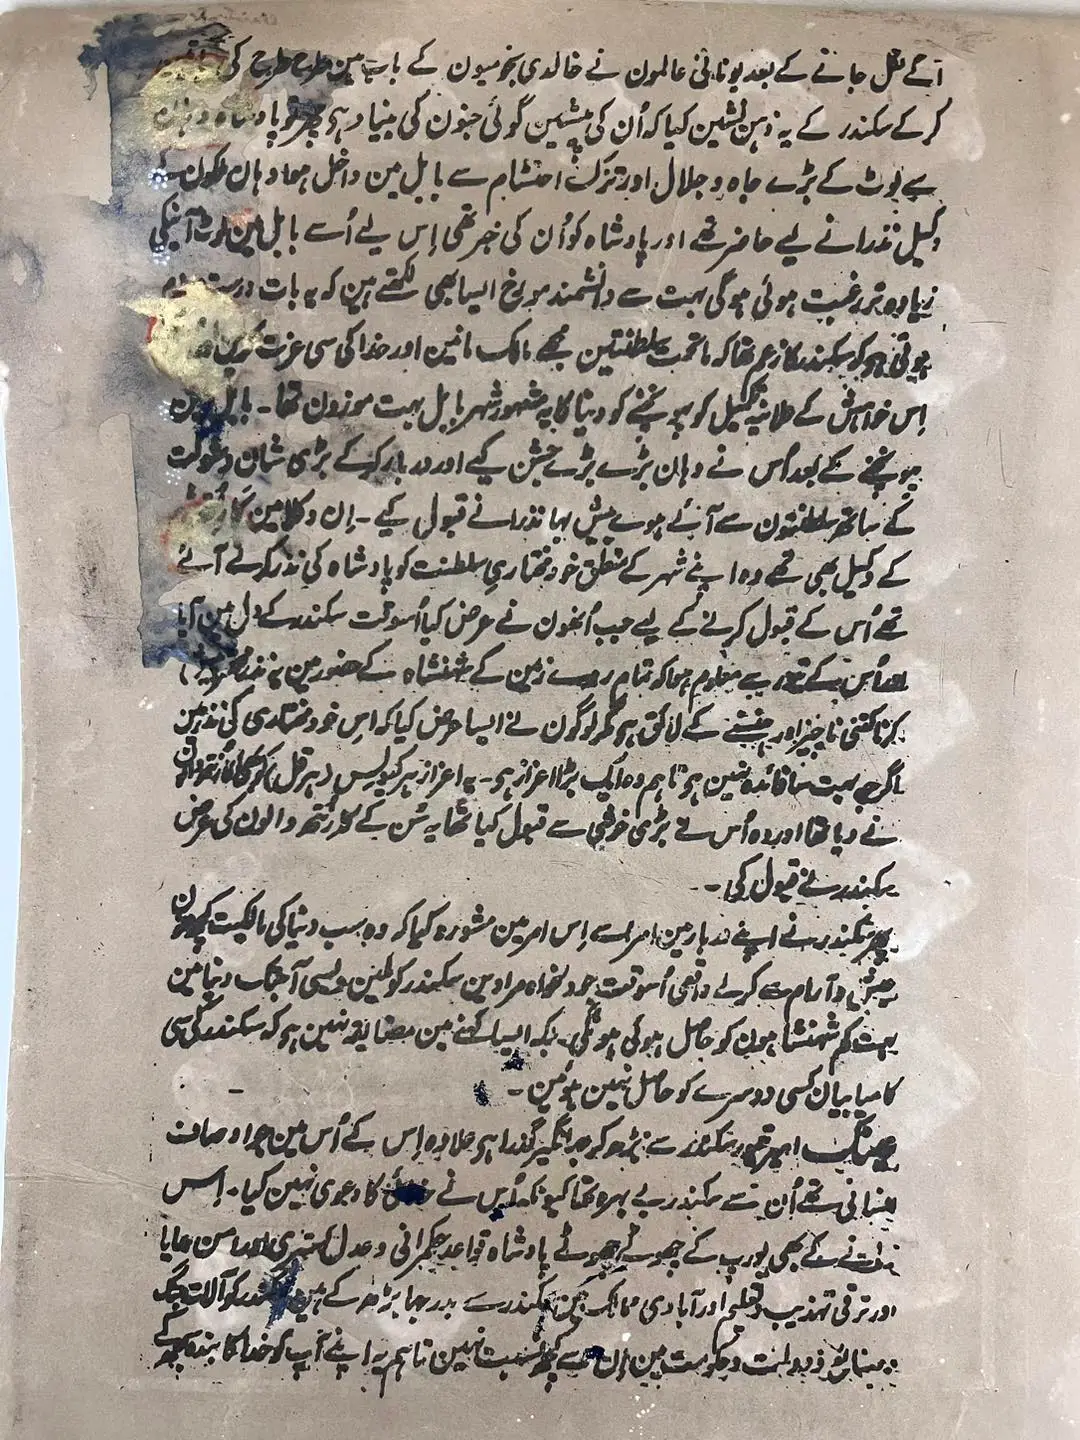 آگے نکل جانے کے بعد یونانی عالمون نے خالدی نجومیون کے باب مین طرح طرح کی
کرکے سکندر کے یہ ذہن نشین کیا کہ اُن کی پیشین گوئی جنون کی بنیاد ہی پھر تو پادشاہ وہان
سے لوٹ کے بڑے جاہ و جلال اور تزک احتشام سے بابل مین داخل ہوا وہان ملکون کے
وکیل نذرانے لیے حاضر تھے اور پادشاہ کو اُن کی خبر تھی اِس لیے اُسے بابل مین لوٹ آنیکی
زیادہ تر رغبت ہوئی ہوگی بہت سے دانشمند مورخ ایسا بھی لکھتے ہین کہ یہ بات درست
ہوتی ہو کہ سکندر کا زعم تھا کہ ماتحت سلطنتین مجھے مالک مانین اور خدا کی سی عزت
اِس خواہش کے علانیہ تکمیل کو پہونچنے کو دنیا کا یہ مشہور شہر بابل بہت موزون تھا۔ بابل مین
پہونچنے کے بعد اُس نے وہان بڑے بڑے جشن کیے اور دربار کرکے بڑی شان و شوکت
کے ساتھ سلطنتون سے آئے ہوے بیش بہا نذرانے قبول کیے۔ اِن وکلا مین کارنتھ
کے وکیل بھی تھے وہ اپنے شہر کے متعلق خود مختاریِ سلطنت کو پادشاہ کی نذر کرنے آئے
تھے اُس کے قبول کرنے کے لیے جب اُنھون نے عرض کیا اُسوقت سکندر کے دل مین آیا
اور اُس کے تیور سے معلوم ہوا کہ تمام روے زمین کے شہنشاہ کے حضور مین یہ نذر
کرنا کتنی ناچیز اور ہنسنے کے لائق ہو مگر لوگون نے ایسا عرض کیا کہ اِس خود مختاری کی نذر مین
اگرچہ بہت سا فائدہ نہین ہو تاہم وہ ایک بڑا اعزاز ہو۔ یہ اعزاز ہرکیولیس (ہرقل) کو بھی کارنتھ والون
نے دیا تھا اور وہ اُس نے بڑی خوشی سے قبول کیا تھا یہ سُن کے کارنتھ والون کی عرض
سکندر نے قبول کی۔
پھر سکندر نے اپنے دربار مین امرا سے اِس امر مین مشورہ کیا کہ وہ سب دنیا کی مالکیت کیونکر
عیش و آرام سے کرے واقعی اُسوقت جو دلخواہ مرادین سکندر کو ملین ویسی آجتک دنیا مین
بہت کم شہنشاہون کو حاصل ہوئی ہونگی۔ بلکہ ایسا کہنے مین مضایقہ نہین ہو کہ سکندر کی سی
کامیابیان کسی دوسرے کو حاصل نہین ہوئین۔
امیر تیمور سکندر سے بڑھ کر جہانگیر گذرا ہی علاوہ اِس کے اُس مین جو اوصاف
انسانی تھے اُن سے سکندر بے بہرہ تھا کیونکہ اُس نے خدائی کا دعوی نہین کیا۔ اِس
زمانے کے بھی یورپ کے چھوٹے چھوٹے پادشاہ قواعد حکمرانی و عدل گستری اور امن رعایا
اور ترقی تہذیب و تعلیم اور آبادی ممالک مین سکندر سے بدرجہا بڑھ کے ہین سکندر کو آلات جنگ
و دولت و حکومت مین اِن سے کچھ نسبت نہین تاہم یہ اپنے آپ کو خدا کا بندہ سمجھ کے